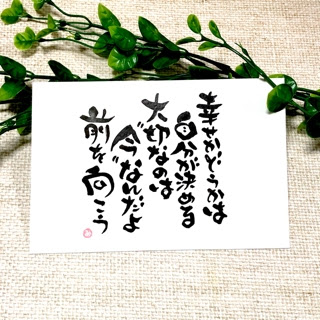 幸せかどうかは
自分が決める
大切なのは
“今”なんだよ
前を向こう